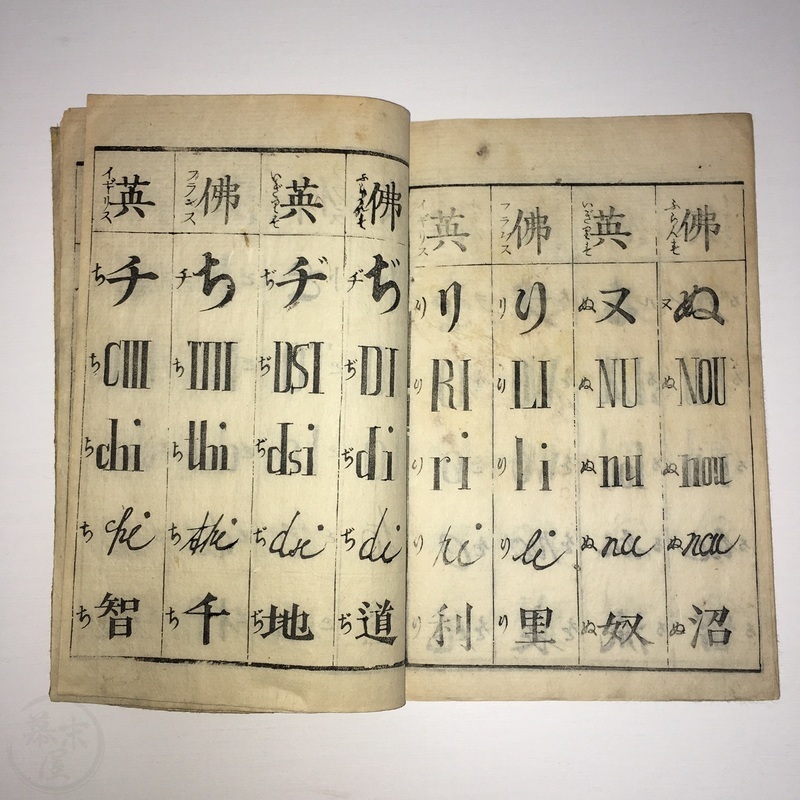 佛 ふらんす ぬ ヌ NOU ぬ nou ぬ nou ぬ 沼 ぬ
英 いぎりす ヌ ぬ NU ぬ nu ぬ nu ぬ 奴 ぬ
佛 フランス り リ LI り li り li り 里 り
英 イギリス リ り RI り ri り ri り 利 り
佛 ふらんす ぢ ヂ DI ぢ di ぢ di ぢ 道 ぢ
英 いぎりす ヂ ぢ DSI ぢ dsi ぢ dsi ぢ 地 ぢ
佛 フランス ち チ THI ち thi ち thi ち 千 ち
英 イギリス チ ち CHI ち chi ち chi ち 智 ち
幕末屋